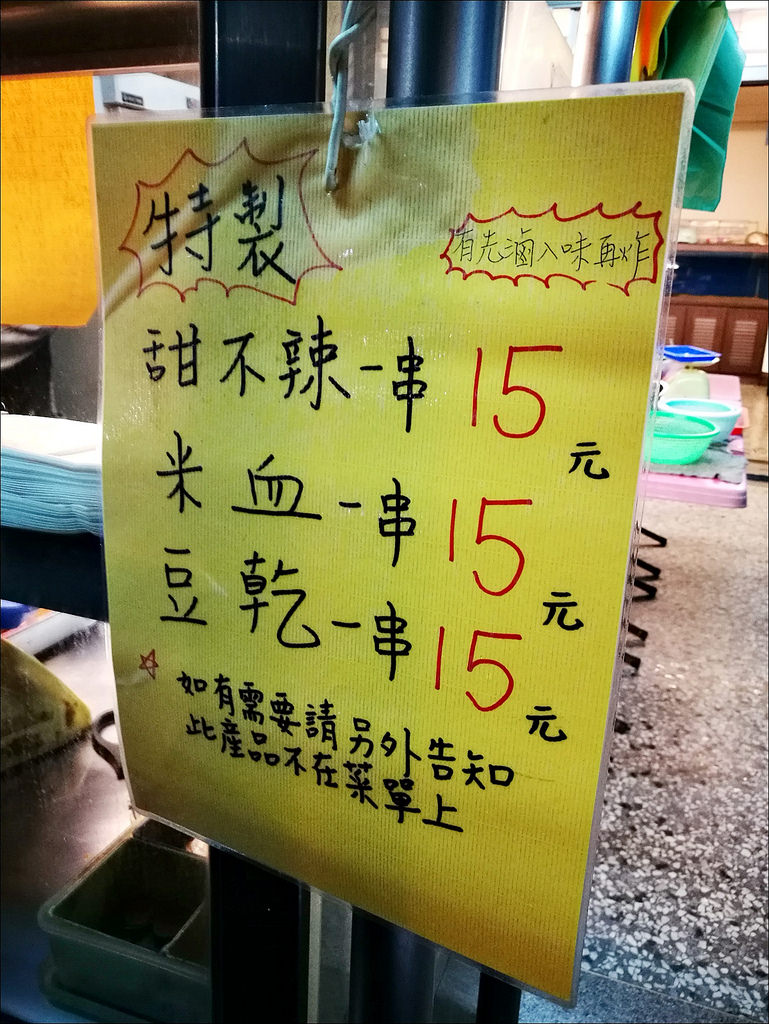 特製
有先滷入味再炸
甜不辣一串 15元
米血一串 15元
豆乾一串 15元
☆如有需要請另外告知
此產品不在菜單上